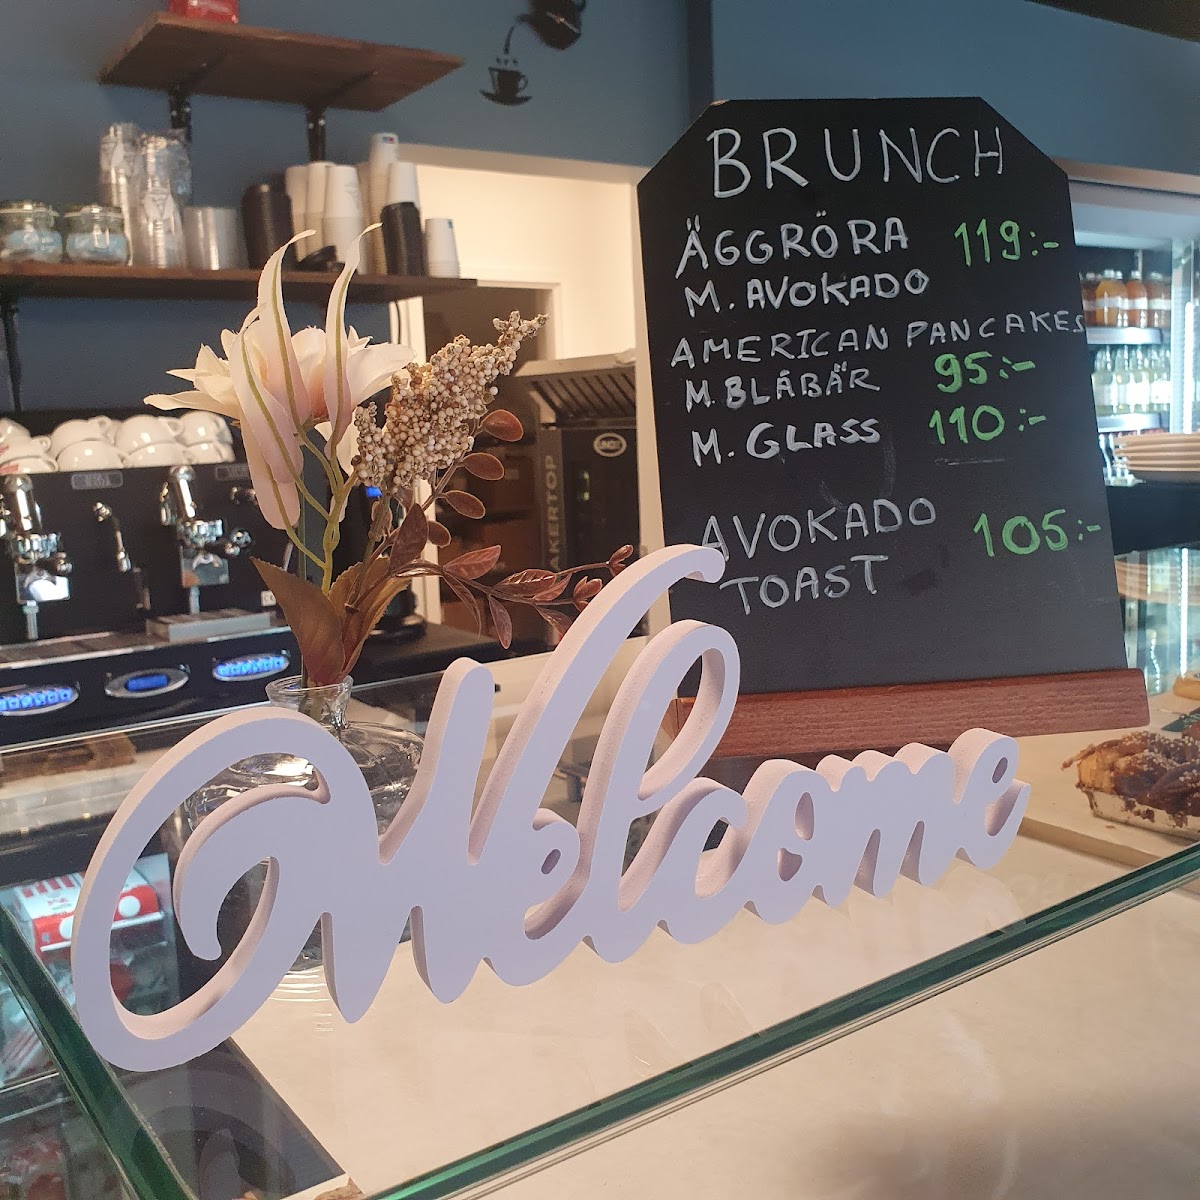 BRUNCH
ÄGGRÖRA 119:-
M. AVOKADO
AMERICAN PANCAKES
M. BLÅBÄR 95:-
M. GLASS 110:-
AVOKADO 105:-
TOAST
Welcome
UNOX
BAKERTOP